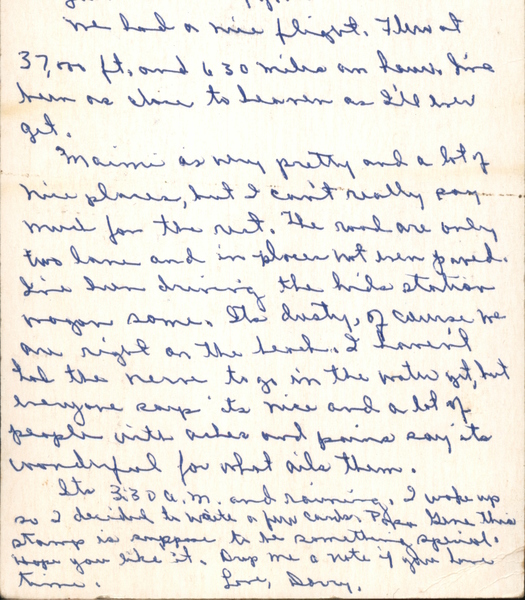 We had a nice flight. Flew at
37,000 ft. and 630 miles an hour. I've
been as close to heaven as I'll ever
get.
Maimi as very pretty and a lot of
nice places, but I can't really say
much for the rest. The road are only
two lane and in places not even paved.
I've been driving the kids station
wagon some. Its dusty, of course we
are right on the beach. I haven't
had the nerve to go in the water yet, but
everyone says its nice and a lot of
people with aches and pains say its
wonderful for what ails them.
Its 3:30 a.m. and raining. I woke up
so I decided to write a few cards. Papa Gene this
stamp is suppose to be something special.
Hope you like it. Drop me a note if you have
time. Love, Dorry.